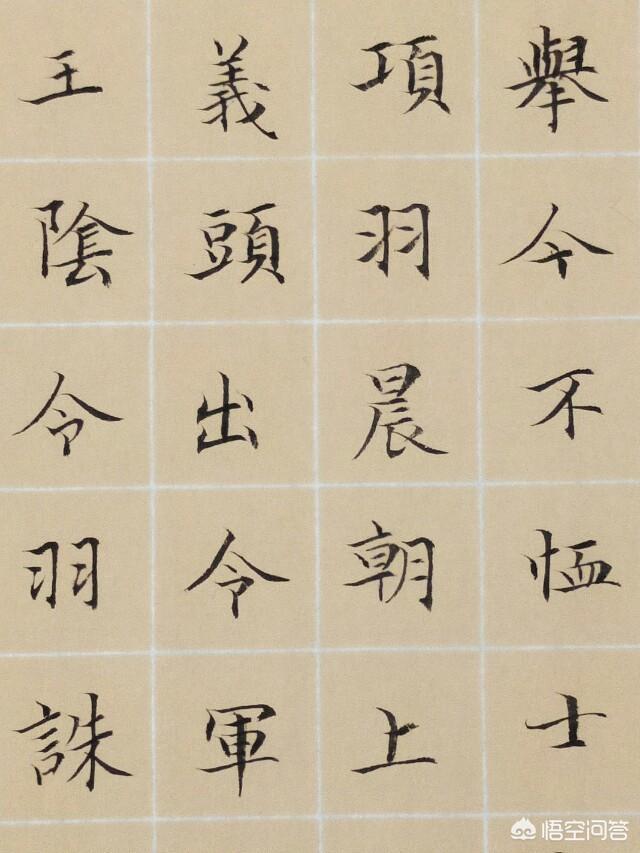 舉今不恤士
項羽晨朝上
義頭出令軍
王陰令羽誅
悟空问答